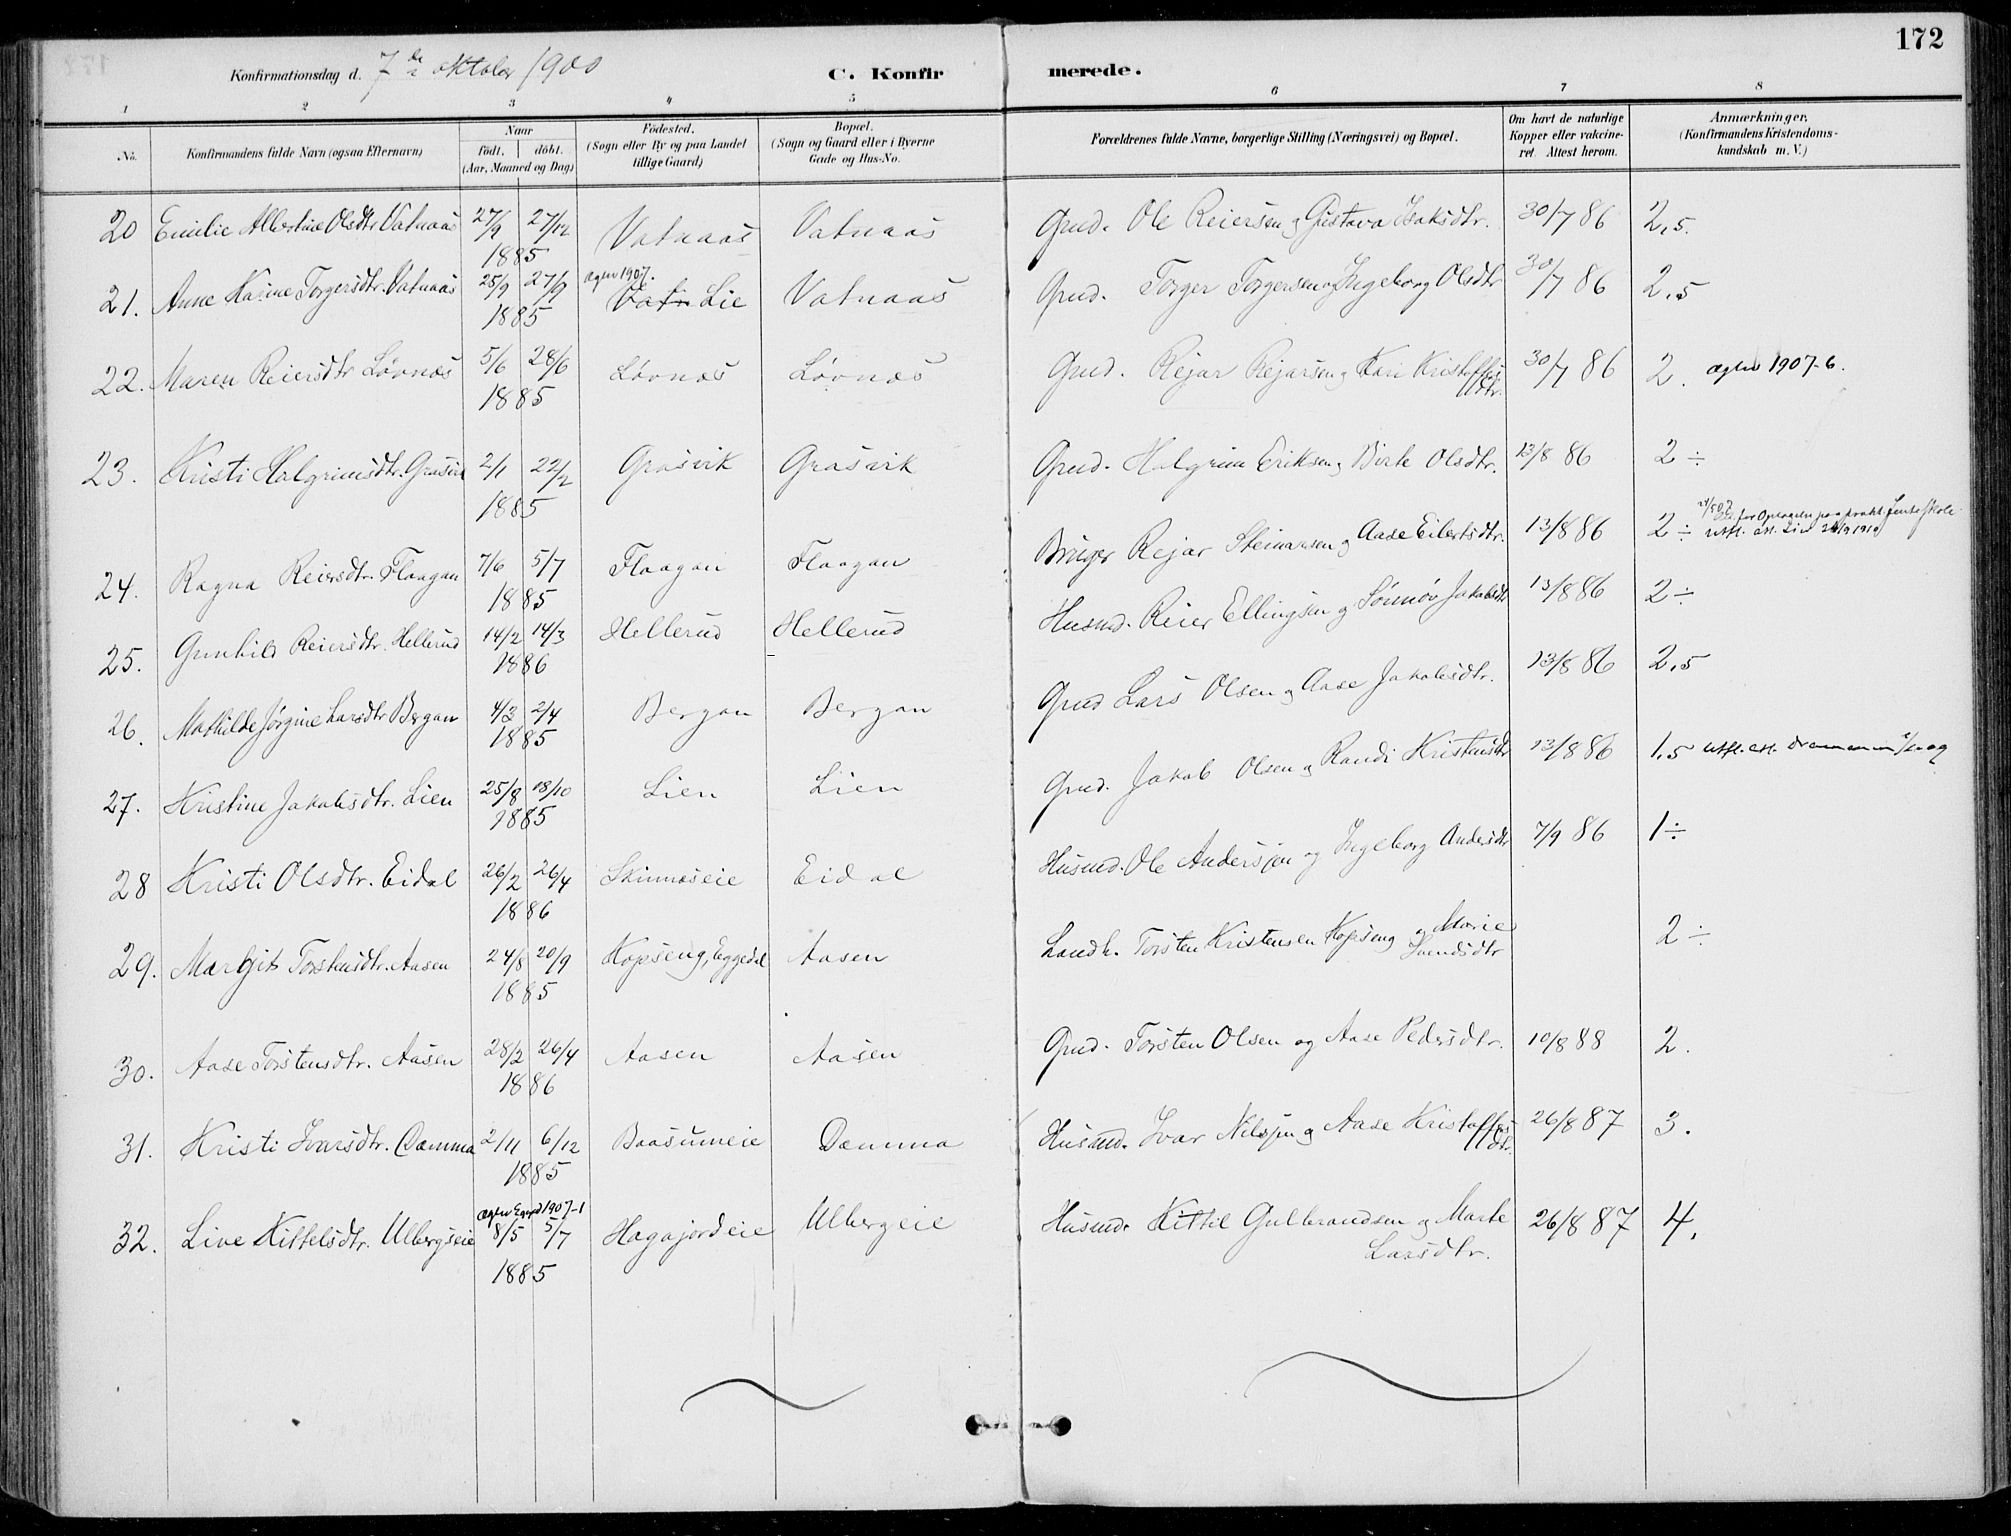 172
Konfirmationsdag d. 7de oktober 1900 C. Konfirmerede.
1 2 3 4 5 6 7 8
No. Konfirmandens fulde Navn (ogsaa Efternavn) Naar födt. döbt. (Aar, Maaned og Dag) Födested. (Sogn eller By og paa Landet tillige Gaard) Bopæl. (Sogn og Gaard eller i Byerne Gade og Hus-No. Forældrenes fulde Navne, borgerlige Stilling (Næringsvei) og Bopæl. Om havt de naturlige Kopper eller vakcineret Attest herom. Anmærkninger. (Konfirmandens Kristendomskundskab m. V.)
20 Emilie Albertine Olsdtr. Vatnaas 27/9 27/12 1885 Vatnaas Vatnaas Grud. Ole Reiersen og Gustava Isaksdtr. 30/7 86 2,5.
21. Anne Karine Torgersdtr. Vatnaas 25/9 27/9 1885 ægtev 1907. Vatn Lie Vatnaas Grud. Torger Torgersen og Ingeborg Olsdtr 30/7 86 2,5
22. Maren Reiersdtr Løvnæs 5/6 28/6 1885 Løvnæs Løvnæs Grud. Rejar Rejarsen og Kari Kristoffersdtr. 30/7 86 2. ægtev 1907-6.
23. Kristi Halgrimsdtr. Grasvik 2/1 22/2 1885 Grasvik Grasvik Grud. Halgrim Eriksen og Birte Olsdtr. 13/8 86 2 ÷
24. Ragna Reiersdtr. Flaagan 7/6 5/7 1885 Flaagan Flaagan Bruger Rejar Steinarsen og Aase Eilertsdtr. 13/8 86 2 ÷
25. Gunhild Reiersdtr. Hellerud 14/2 14/3 1886 Hellerud Hellerud Husmd. Reier Ellingsen og Sønnøv Jakobsdtr 13/8 86 2 ÷
26. Mathilde Jørgine Larsdtr Bergan 4/3 2/4 1885 Bergan Bergan Grud Lars Olsen og Aase Jakobsdtr. 13/8 86 2,5
27. Kristine Jakobsdtr. Lien 25/8 18/10 1885 Lien Lien Grud. Jakob Olsen og Randi Kristensdtr 13/8 86 1,5 utfl. att. Drammen
28 Kristi Olsdtr. Eidal 26/2 26/4 1886 Skinnæseie Eidal Husmd. Ole Andersen og Ingeborg Andersdtr 7/9 86 1 ÷
29. Margit Torstensdtr. Aasen 24/8 20/9 1885 Kopseng, Eggedal Aasen Landh. Torsten Kristensen Kopseng og Marie Svendsdtr 2 ÷
30. Aase Torstensdtr. Aasen 28/2 26/4 1886 Aasen Aasen Grud. Torsten Olsen og Aase Pedersdtr. 10/8 88 2.
31. Kristi Ivarsdtr. Damma 2/11 6/12 1885 Baasumeie Damma Husmd. Ivar Nilsen og Aase Kristoffersdtr. 26/8 87 3.
32. Live Kittelsdtr. Ulbergseie 8/5 5/7 1885 Hagajordeie Ulbergeie Husmd. Kittil Gulbrandsen og Marte Larsdtr. 26/8 87 4.